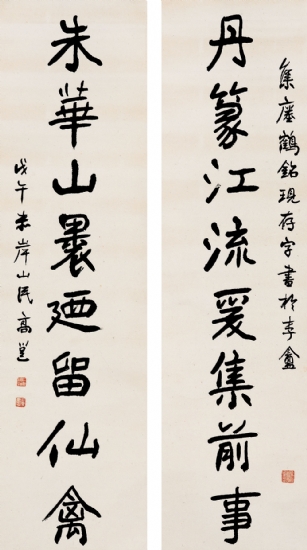 集瘞鶴銘現存字書於李盦
丹篆江流爰集前事
朱華山褁廼留仙禽
戊午赤岸山民高邕